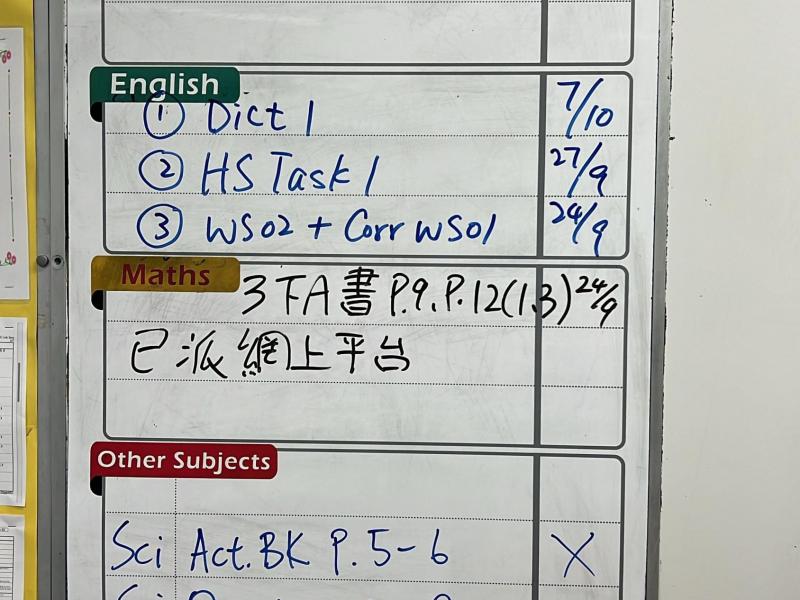 English
① Dict 1 7/10
② HS Task 1 27/9
③ WS02 + Corr WS01 24/9
Maths
3下A書 P.9, P.12(1,3) 24/9
已派網上平台
Other Subjects
Sci Act.BK P.5-6 X
Sci